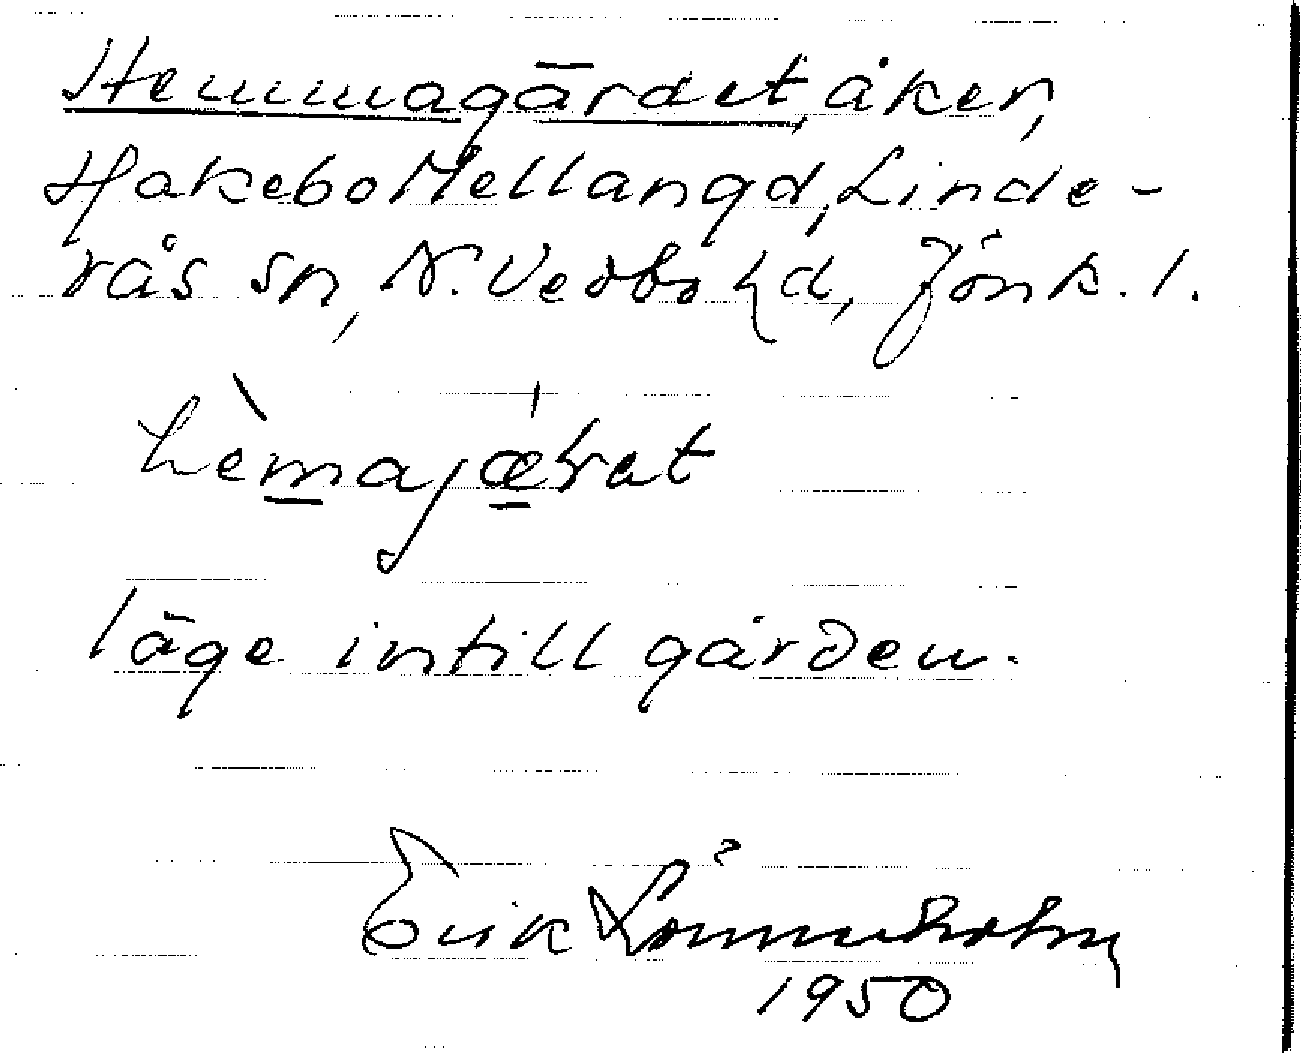 Hemmagärdet, åker,
Hakebo Mellangd, Linde-
rås sn, N. Vedbo hd, Jönk. l.
hèmajætat
läge intill gården.
Erik Lönnerholm
1950